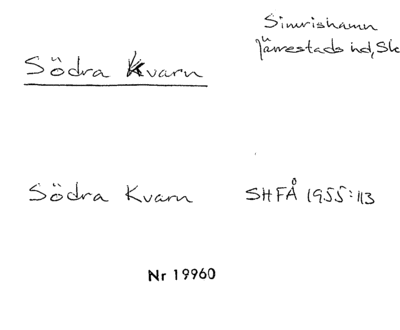 Simrishamn
Järrestads hd, Sk
Södra Kvarn
Södra Kvarn SHFÅ 1955:113
Nr 19960